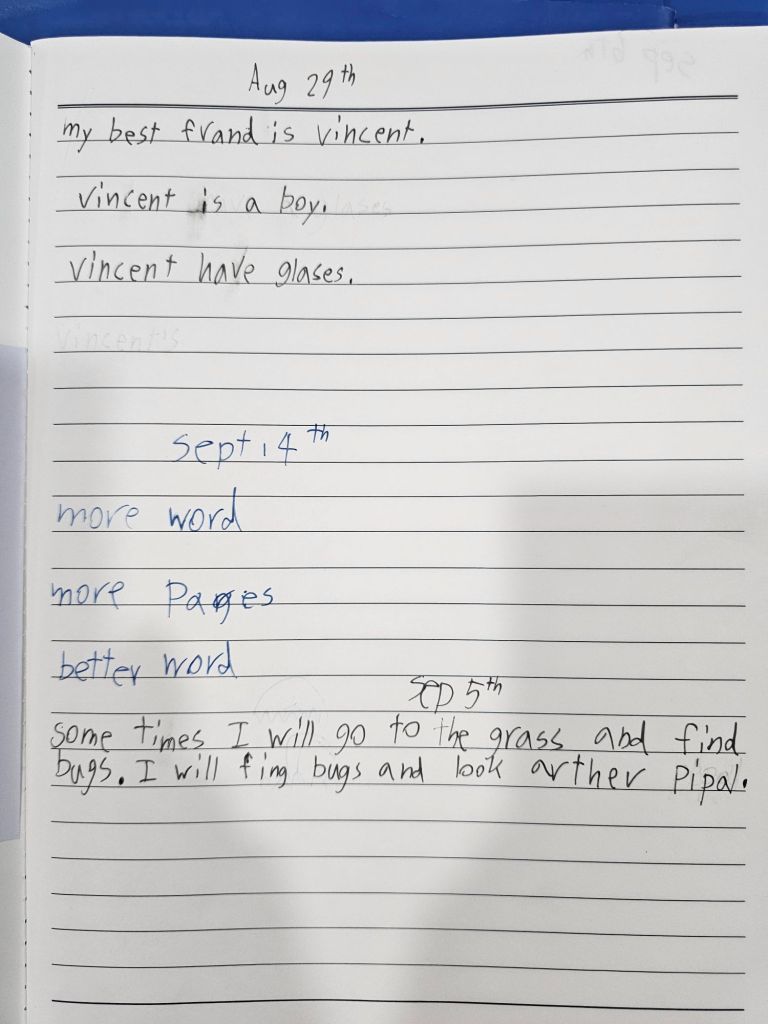 Aug 29th
my best frand is vincent.
vincent is a boy.
vincent have glases.
vincent's
Sept 14th
more word
more Pages
better word
Sep 5th
some times I will go to the grass abd find
bugs. I will fing bugs and look arther pipal.